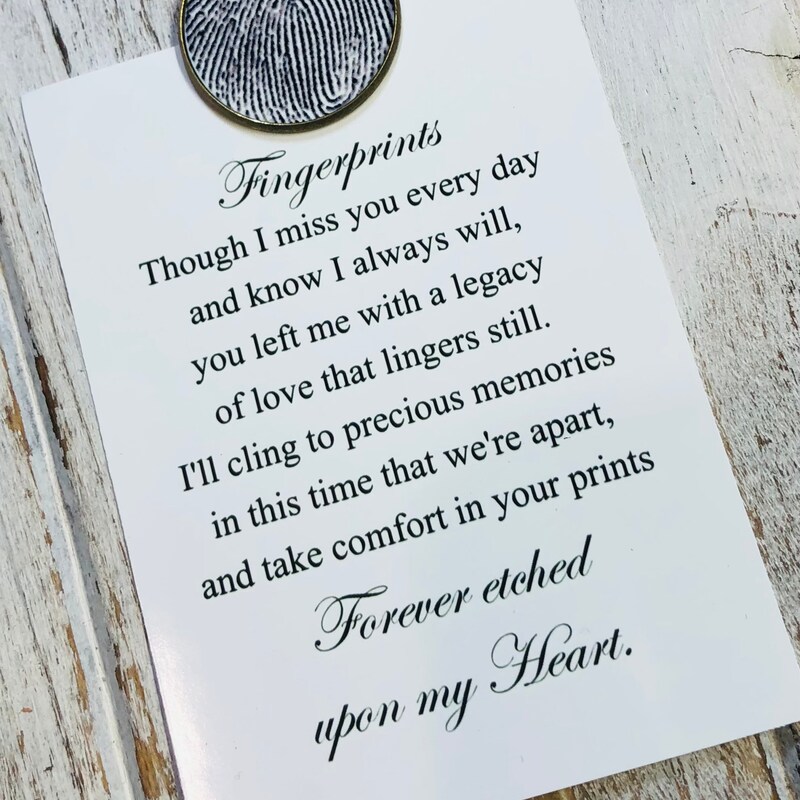 Fingerprints
Though I miss you every day
and know I always will,
you left me with a legacy
of love that lingers still.
I'll cling to precious memories
in this time that we're apart,
and take comfort in your prints
Forever etched
upon my Heart.